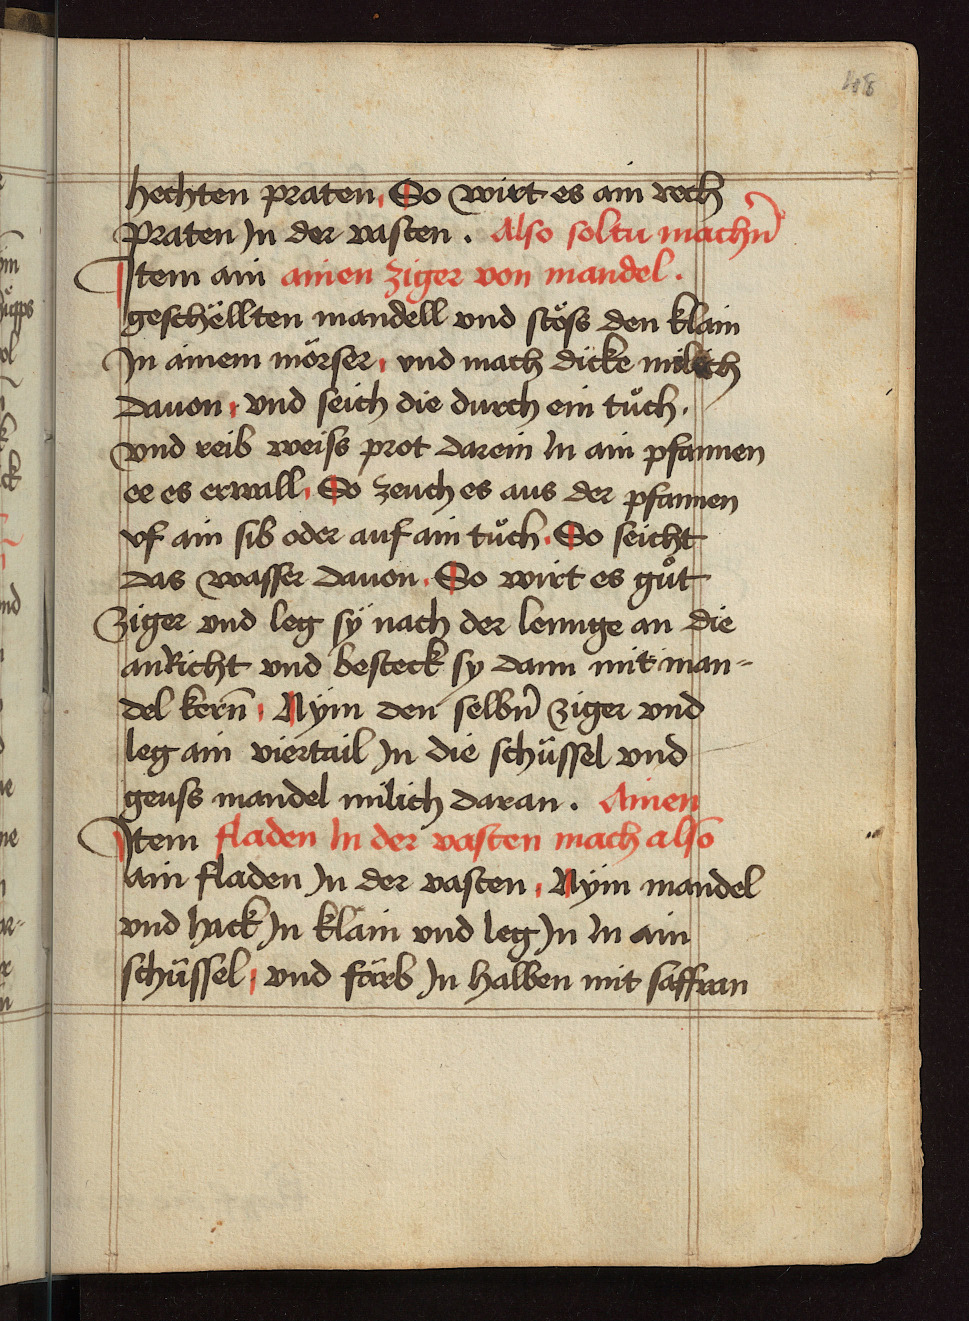 48
hechten praten, So wirt es ain rech
praten Jn der vasten . Also soltu machn̄
Jtem ain ainen ziger von mandel .
geschellten mandell vnd stöss den klain
Jn ainem mörser, vnd mach dicke milich
dauon, vnd seich die durch ein tůch .
vnd reib weiss prot darein Jn ain pfannen
ee es erwall, So zeuch es aus der pfannen
vf ain sib oder auf ain tůch. So seicht
das wasser dauon. So wirt es gůt
ziger vnd leg sÿ nach der lennge an die
anRicht vnd besteck sy dann mit man-
del kern̄, Nym den selbn̄ ziger vnd
leg ain viertail Jn die schüssel vnd
geuss mandel milich daran . Ainen
Jtem fladen Jn der vasten mach also
ain fladen Jn der vasten, Nym mandel
vnd hack Jn klain vnd leg Jn Jn ain
schüssel, vnd färb Jn halben mit saffran